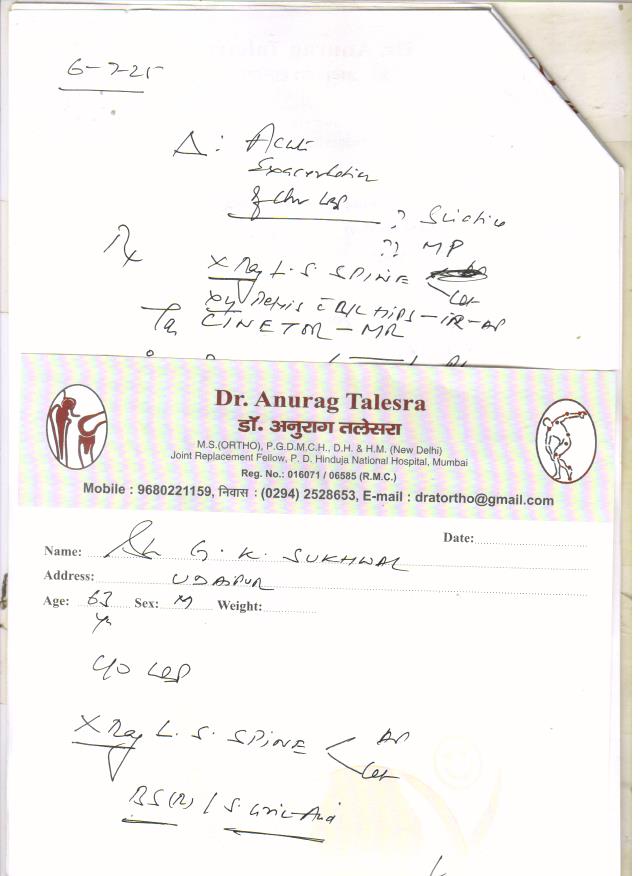 6-7-25
Δ: Acute
Exacerbation
of Chr LBP
? Sciatica
?? MP
Rx
X Ray L. S. SPINE
Lat
Xray Pelvis c B/L HIPS - IR - AP
CINETOR - MR
Dr. Anurag Talesra
डॉ. अनुराग तलेसरा
M.S.(ORTHO), P.G.D.M.C.H., D.H. & H.M. (New Delhi)
Joint Replacement Fellow, P. D. Hinduja National Hospital, Mumbai
Reg. No.: 016071 / 06585 (R.M.C.)
Mobile : 9680221159, निवास : (0294) 2528653, E-mail : dratortho@gmail.com
Date:
Name: Sh G. K. SUKHWAL
Address: UDAIPUR
Age: 63 yr Sex: M Weight:
C/O LBP
X Ray L. S. SPINE AP
Lat
BS(R) / S. Uric Acid